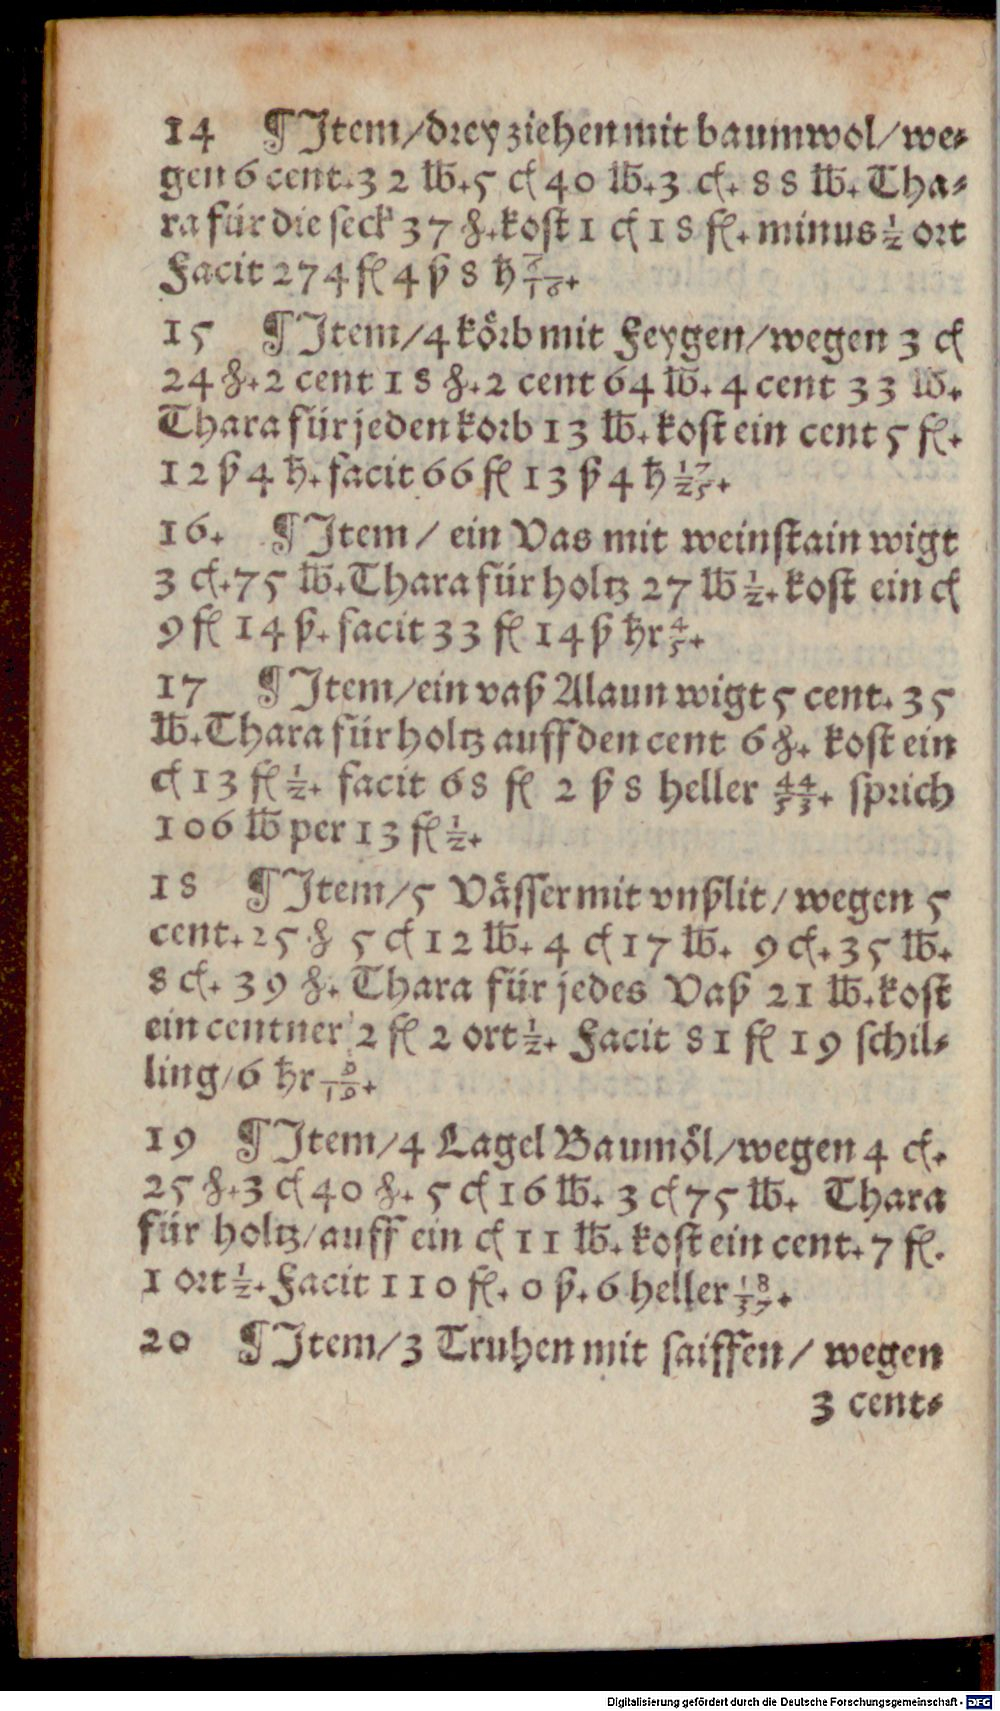 14 ¶ Item/drey ziehen mit baumwol/we⸗
gen 6 cent. 3 2 ℔. 5 ct 40 ℔. 3 ct. 88 ℔. Tha⸗
ra für die seck 37 ℔. kost 1 ct 18 fl. minus ½ ort
Facit 274 fl 4 ß 8 hl
15 ¶ Item/4 körb mit Feygen/wegen 3 ct
24 ℔. 2 cent 18 ℔. 2 cent 64 ℔. 4 cent 33 ℔.
Thara für jeden korb 13 ℔. kost ein cent 5 fl.
12 ß 4 hl. facit 66 fl 13 ß 4 hl
16. ¶ Item/ ein Vas mit weinstain wigt
3 ct. 75 ℔. Thara für holtz 27 ℔ ½. kost ein ct
9 fl 14 ß. facit 33 fl 14 ß hlr ⅘.
17 ¶ Item/ein vaß Alaun wigt 5 cent. 35
℔. Thara für holtz auff den cent 6 ℔. kost ein
ct 13 fl ½. facit 68 fl 2 ß 8 heller 44/53. sprich
106 ℔ per 13 fl ½.
18 ¶ Item/5 Vässer mit vnßlit/ wegen 5
cent. 25 ℔ 5 ct 12 ℔. 4 ct 17 ℔. 9 ct. 35 ℔.
8 ct. 39 ℔. Thara für jedes Vaß 21 ℔. kost
ein centner 2 fl 2 ort ½. Facit 81 fl 19 schil⸗
ling/6 hlr 9/10.
19 ¶ Item/4 Lagel Baumöl/wegen 4 ct.
25 ℔. 3 ct 40 ℔. 5 ct 16 ℔. 3 ct 75 ℔. Thara
für holtz/auff ein ct 11 ℔. kost ein cent. 7 fl.
1 ort ½. Facit 110 fl. 0 ß. 6 heller 18/37.
20 ¶ Item/3 Truhen mit saiffen/ wegen
3 cent⸗
Digitalisierung gefördert durch die Deutsche Forschungsgemeinschaft - DFG